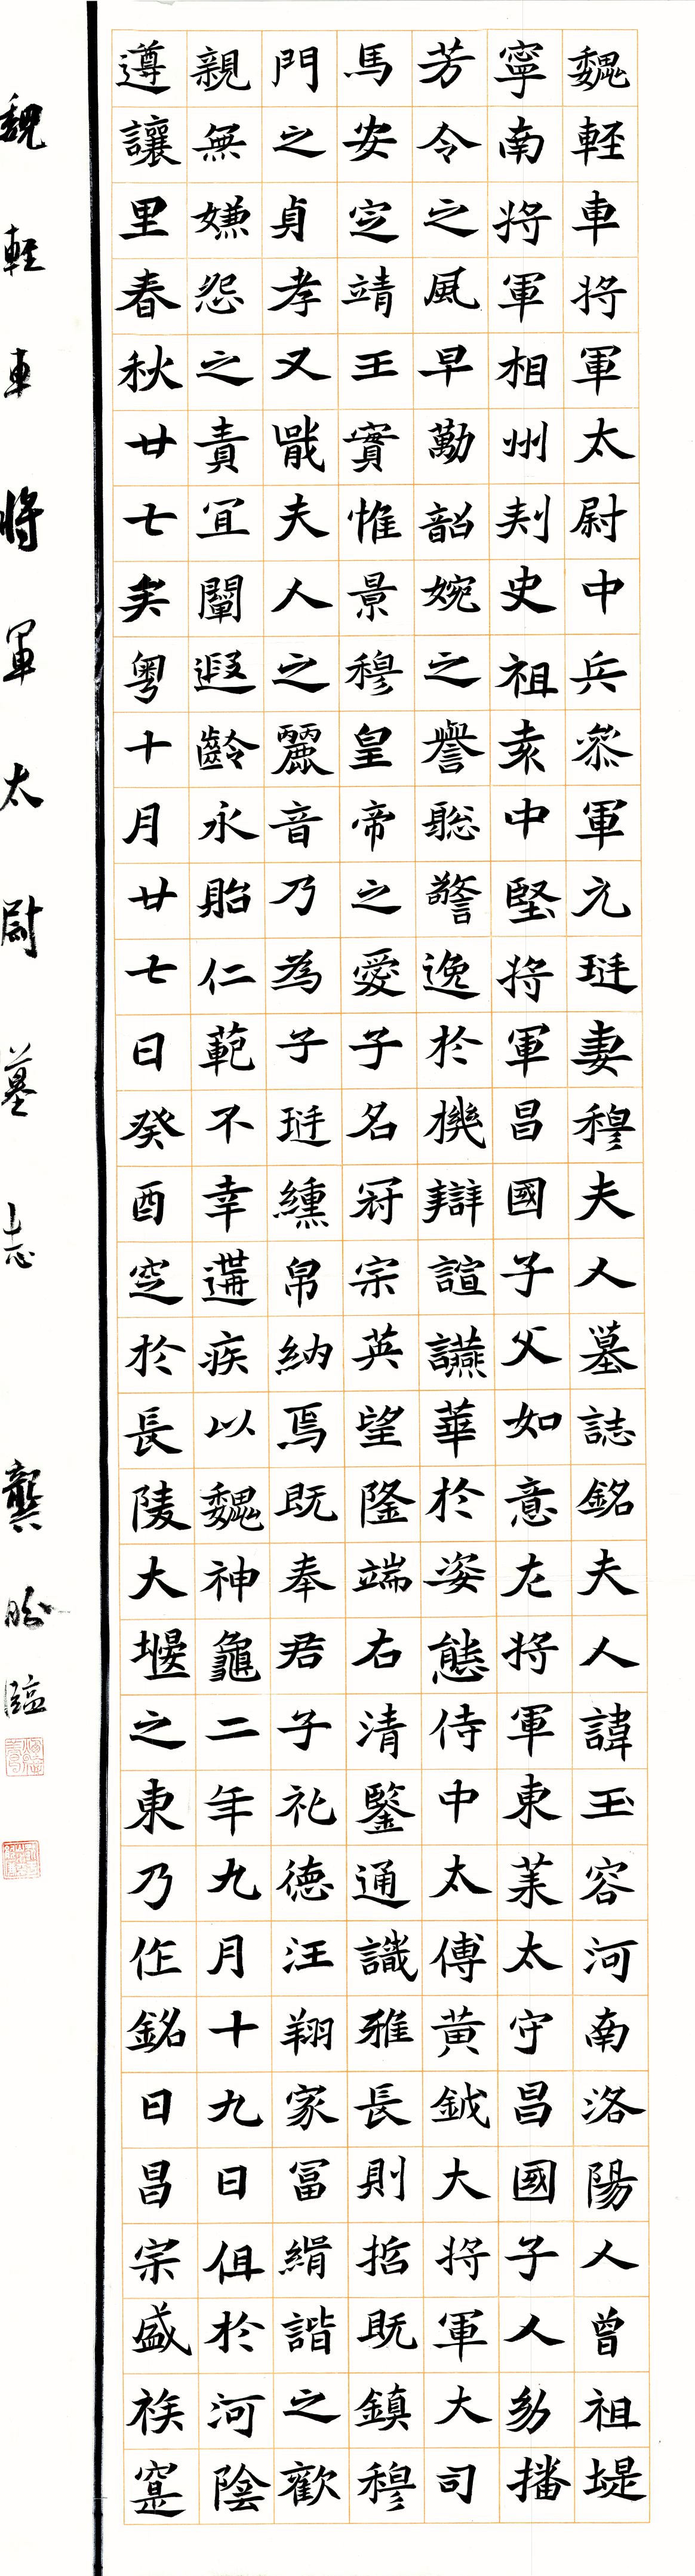 魏輕車將軍太尉中兵叅軍元珽妻穆夫人墓誌銘夫人諱玉容河南洛陽人曾祖堤
寧南將軍相州刾史祖袁中堅將軍昌國子父如意左將軍東萊太守昌國子人㓜播
芳令之風早勱韶婉之譽聡警逸於機辯諠讌華於姿態侍中太傅黄鉞大將軍大司
馬安定靖王實惟景穆皇帝之愛子名冠宗英望隆端右清鑒通識雅長則哲既鎮穆
門之貞孝又戢夫人之麗音乃為子珽纁帛納焉既奉君子礼德汪翔家冨緝諧之歡
親無嫌怨之責宜闡遐齡永貽仁範不幸遘疾以魏神龜二年九月十九日俎於河陰
遵讓里春秋廿七矣粤十月廿七日癸酉空於長陵大堰之東乃作銘曰昌宗盛族寔
魏輕車將軍太尉墓志 龔 臨